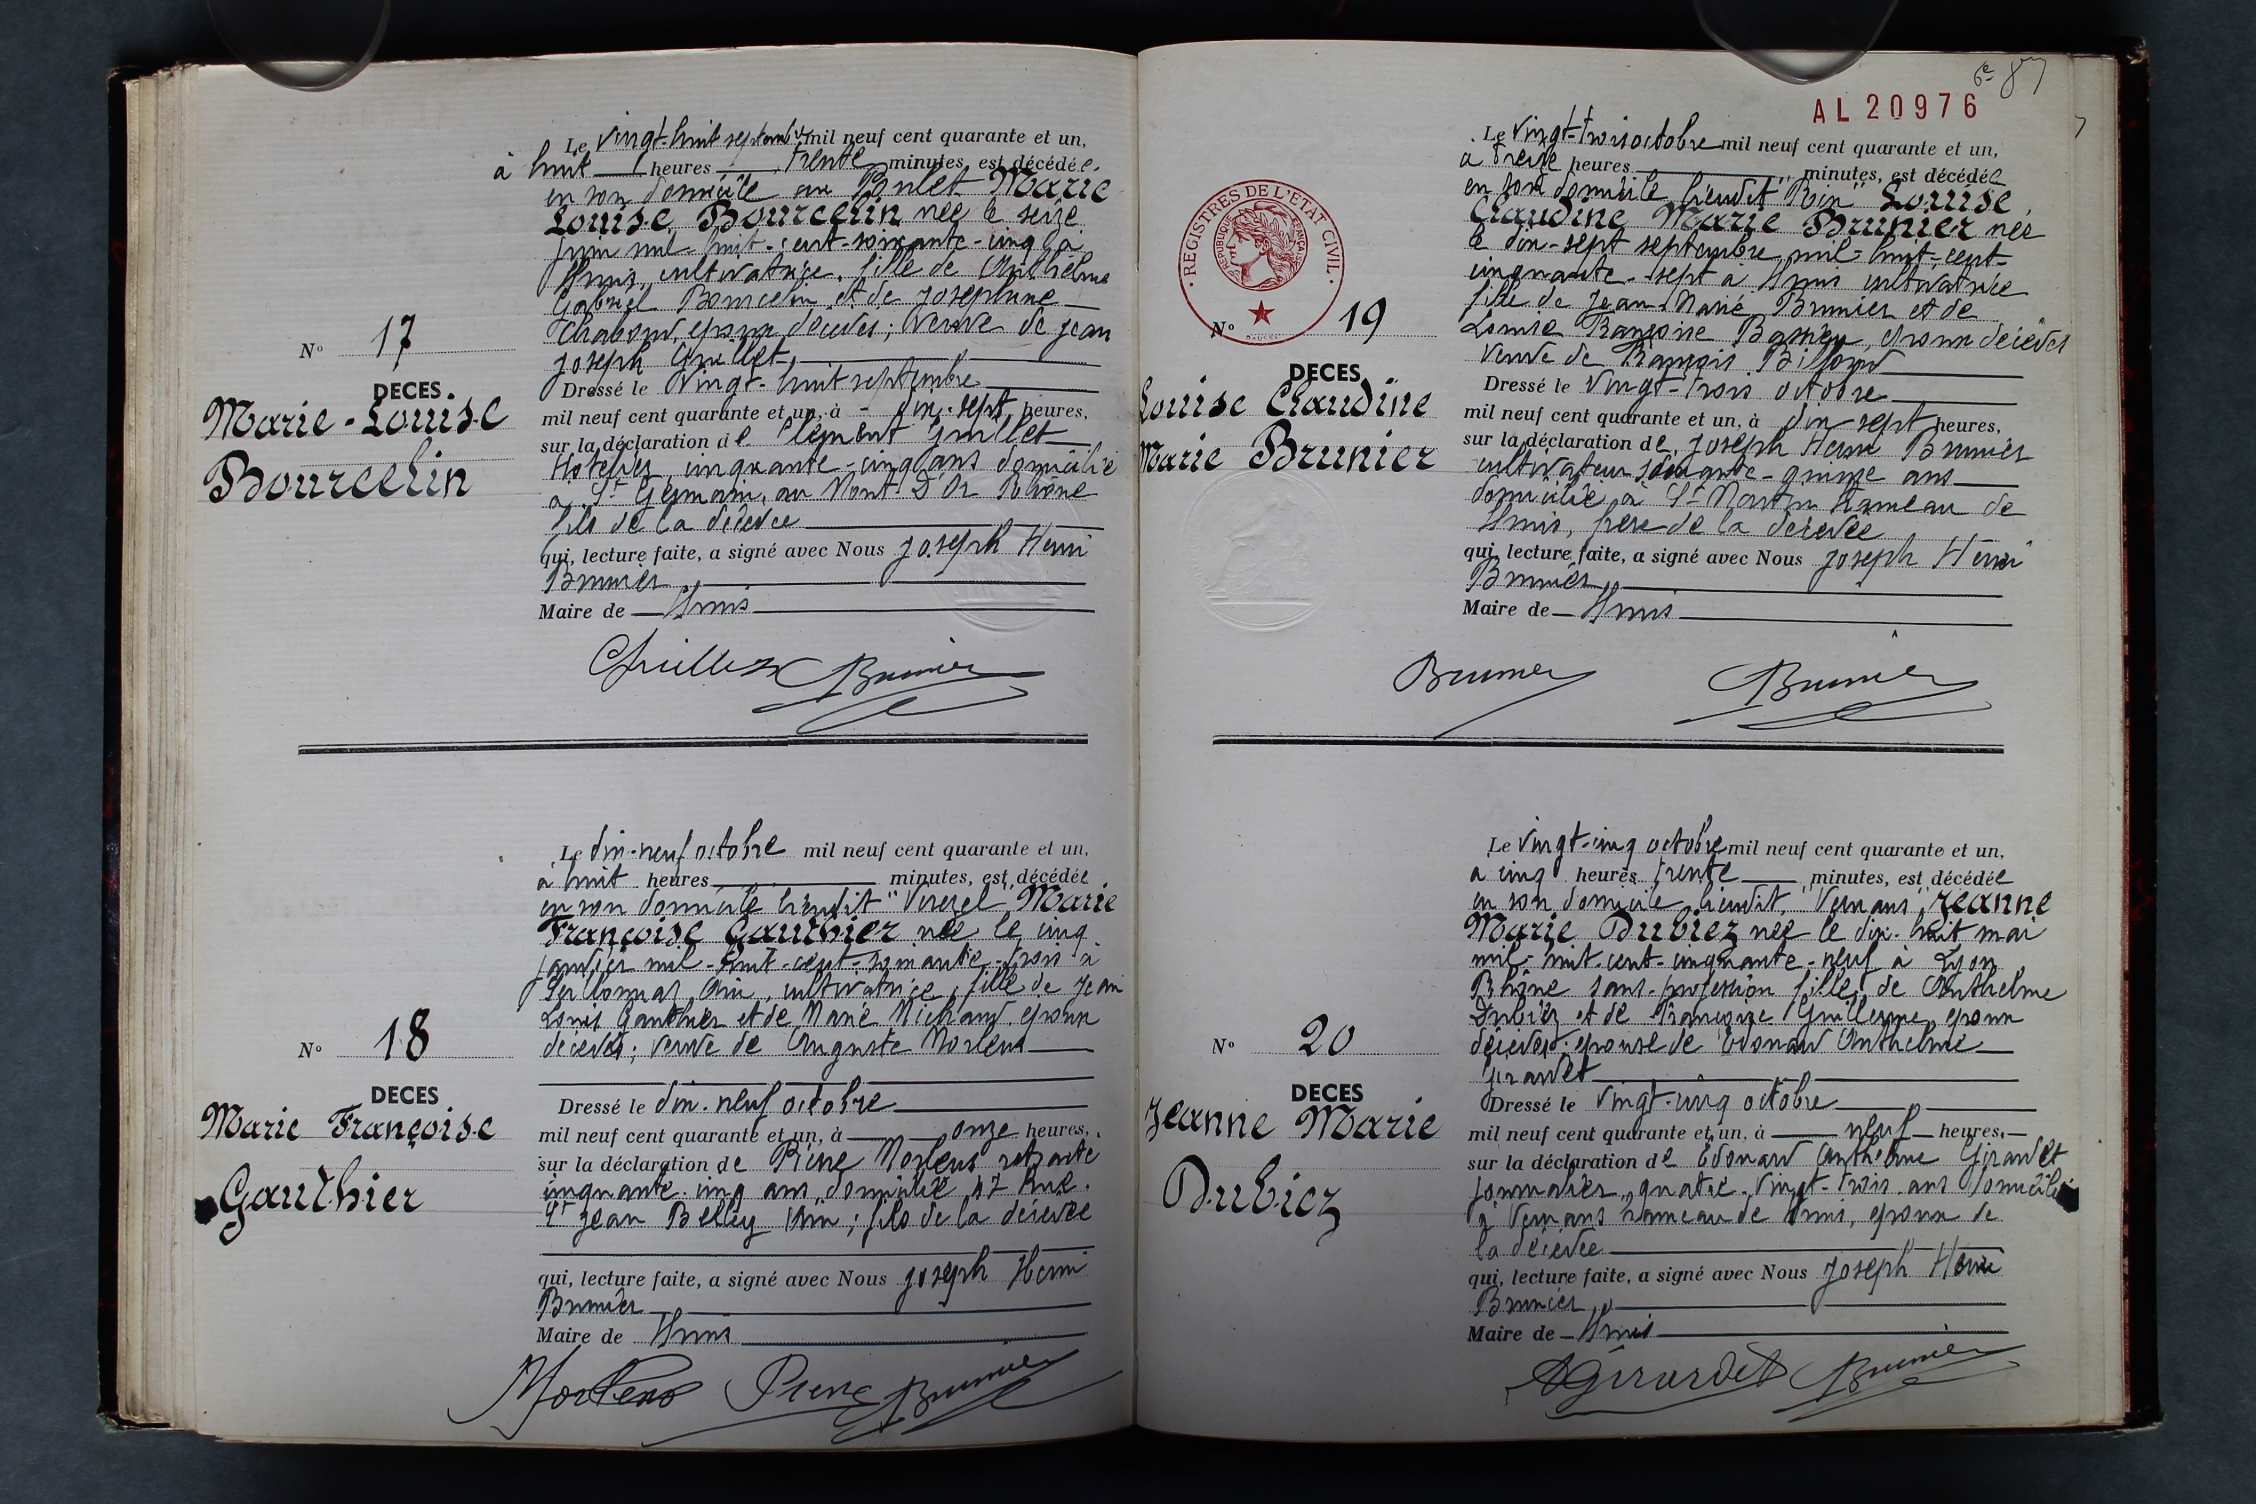 Le vingt-huit septembre mil neuf cent quarante et un,
à huit heures trente minutes, est décédée
en son domicile au Marie
Louise Bourcelin née le seize
juin mil-huit-cent-soixante-cinq à
cultivatrice, fille de Anthelme
Gabriel Bourcelin et de Joséphine
époux décédés; veuve de Jean
Joseph Grillet
N° 17
DECES
Marie-Louise
Bourcelin
Dressé le vingt-huit septembre
mil neuf cent quarante et un, à dix-sept heures,
sur la déclaration de Clément Grillet
Hotelier, cinquante-cinq ans domicilié
à St Germain au Mont D'Or Rhône
fils de la décédée
qui, lecture faite, a signé avec Nous Joseph Henri
Brunier
Maire de
Grillet Brunier
Le dix-neuf octobre mil neuf cent quarante et un,
à huit heures minutes, est décédée
en son domicile lieudit Marie
Françoise Gauthier née le cinq
janvier mil-huit-cent-soixante-trois à
Ain, cultivatrice, fille de Jean
Louis Gauthier et de Marie Michaud époux
décédés; veuve de Auguste
N° 18
DECES
Marie Françoise
Gauthier
Dressé le dix-neuf octobre
mil neuf cent quarante et un, à onze heures,
sur la déclaration de Pierre retraité
cinquante-cinq ans domicilié 47 Rue
St Jean Belley Ain; fils de la décédée
qui, lecture faite, a signé avec Nous Joseph Henri
Brunier
Maire de
Pierre Brunier
6e
AL 20976
REGISTRES DE L'ETAT CIVIL
REPUBLIQUE FRANÇAISE
Le vingt-trois octobre mil neuf cent quarante et un,
à treize heures minutes, est décédée
en son domicile lieudit Louise
Claudine Marie Brunier née
le dix-sept septembre mil-huit-cent-
cinquante-sept à cultivatrice
fille de Jean-Marie Brunier et de
Louise Françoise époux décédés
veuve de François
N° 19
DECES
Louise Claudine
Marie Brunier
Dressé le vingt-trois octobre
mil neuf cent quarante et un, à dix sept heures,
sur la déclaration de Joseph Henri Brunier
cultivateur soixante-quinze ans
domicilié à St Martin hameau de
frère de la décédée
qui, lecture faite, a signé avec Nous Joseph Henri
Brunier
Maire de
Brunier Brunier
Le vingt-cinq octobre mil neuf cent quarante et un,
à cinq heures trente minutes, est décédée
en son domicile lieudit "Jeanne
Marie Dubiez née le dix-huit mai
mil-huit-cent-cinquante-neuf à Lyon
Rhône sans-profession fille de Anthelme
Dubiez et de Françoise époux
décédés épouse de Edouard Anthelme
Girardet
N° 20
DECES
Jeanne Marie
Dubiez
Dressé le vingt-cinq octobre
mil neuf cent quarante et un, à neuf heures,
sur la déclaration de Edouard Anthelme Girardet
journalier quatre-vingt-trois ans domicilié
à hameau de époux de
la décédée
qui, lecture faite, a signé avec Nous Joseph Henri
Brunier
Maire de
AGirardet Brunier